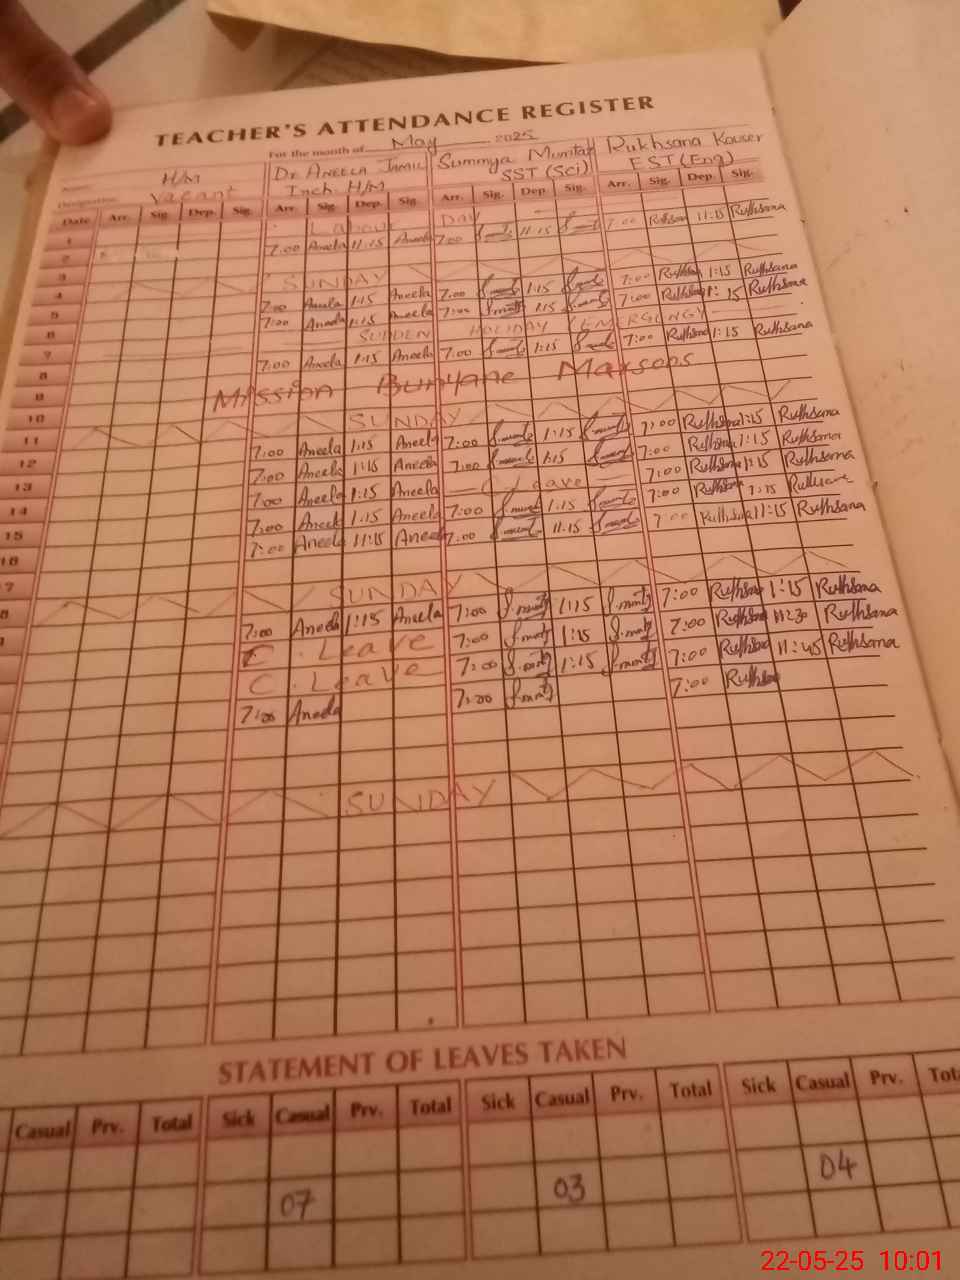 TEACHER'S ATTENDANCE REGISTER
For the month of May 2025
H/M Dr. Aneela Jamil Summya Mumtaz Rukhsana Kouser
Designation Vacant Inch. H/M SST (Sci) EST (Eng)
Date Arr. Sig. Dep. Sig. Arr. Sig. Dep. Sig. Arr. Sig. Dep. Sig. Arr. Sig. Dep. Sig.
1 Labour DAY
2 7:00 Aneela 11:15 Aneela 7:00 11:15 7:00 Ruthsana 11:15 Ruthsana
3
4 SUNDAY
5 7:00 Aneela 1:15 Aneela 7:00 1:15 7:00 Ruthsana 1:15 Ruthsana
6 7:00 Aneela 1:15 Aneela 7:00 1:15 7:00 Ruthsana 1:15 Ruthsana
7 SUDDEN HOLIDAY (EMERGENGY)
8 7:00 Aneela 1:15 Aneela 7:00 1:15 7:00 Ruthsana 1:15 Ruthsana
9 Mission Bunyane Marsons
10
11 SUNDAY
12 7:00 Aneela 1:15 Aneela 7:00 1:15 7:00 Ruthsana 1:15 Ruthsana
13 7:00 Aneela 1:15 Aneela 7:00 1:15 7:00 Ruthsana 1:15 Ruthsana
14 7:00 Aneela 1:15 Aneela C/Leave 7:00 Ruthsana 1:15 Ruthsana
15 7:00 Aneela 1:15 Aneela 7:00 1:15 7:00 Ruthsana 1:15 Ruthsana
16 7:00 Aneela 11:15 Aneela 7:00 11:15 7:00 Ruthsana 11:15 Ruthsana
SUNDAY
7:00 Aneela 1:15 Aneela 7:00 1:15 7:00 Ruthsana 1:15 Ruthsana
C. Leave 7:00 1:15 7:00 Ruthsana 11:30 Ruthsana
C. Leave 7:00 1:15 7:00 Ruthsana 11:45 Ruthsana
7:00 Aneela 7:00 7:00 Ruthsana
SUNDAY
STATEMENT OF LEAVES TAKEN
Casual Prv. Total Sick Casual Prv. Total Sick Casual Prv. Total Sick Casual Prv. Tot
07 03 04
22-05-25 10:01